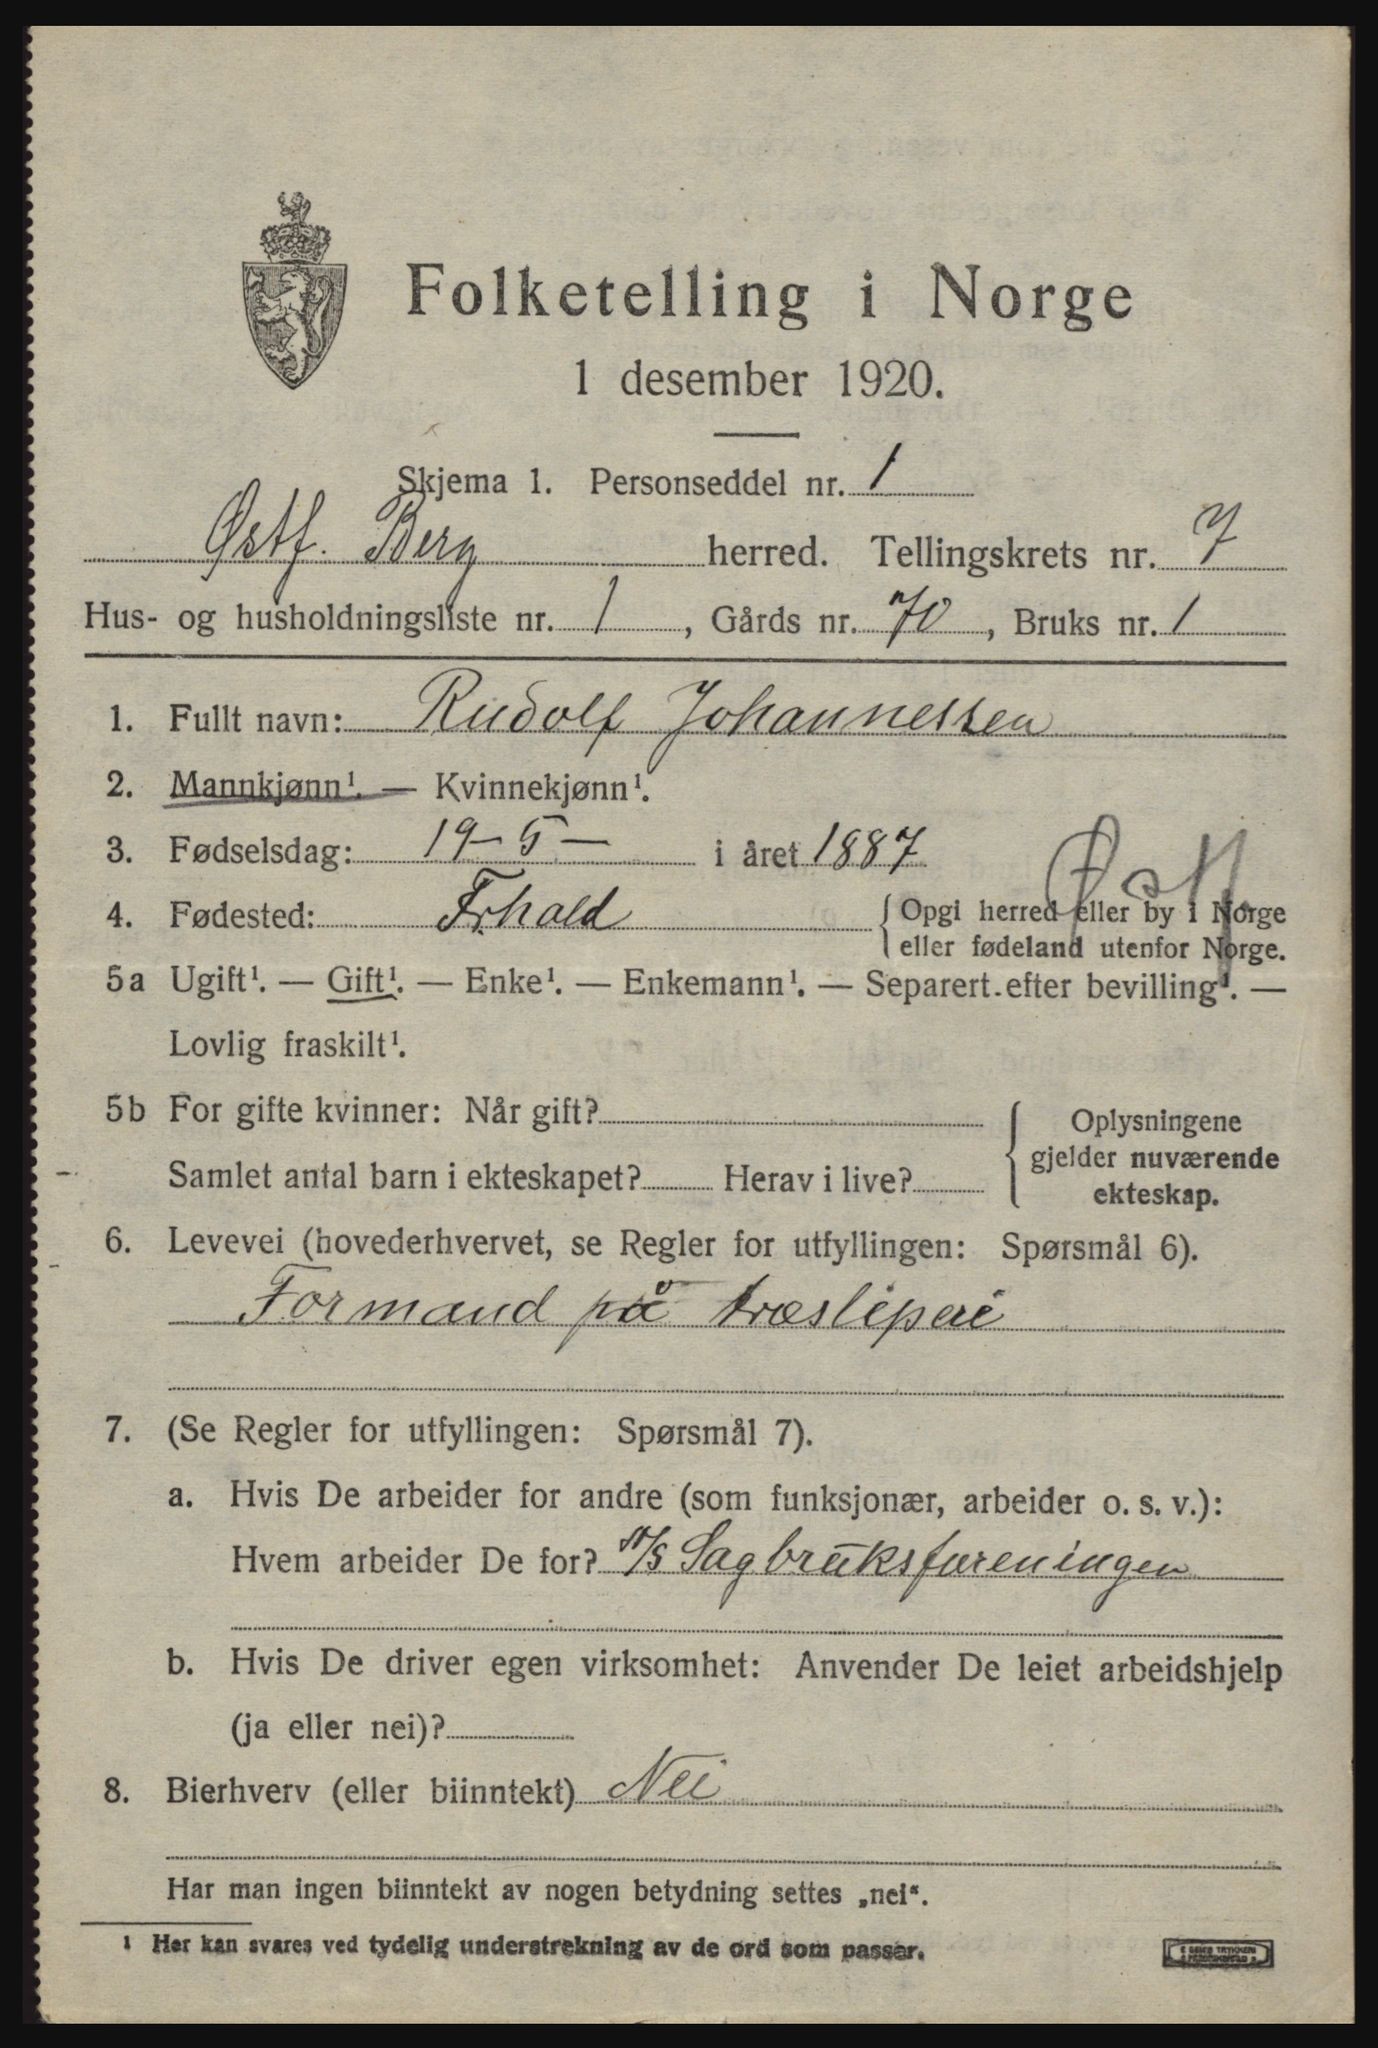 Folketelling i Norge
1 desember 1920.
Skjema 1. Personseddel nr. 1
Østf. Berg herred. Tellingskrets nr. 7
Hus- og husholdningsliste nr. 1, Gårds nr. 70, Bruks nr. 1
1. Fullt navn: Rudolf Johannessen
2. Mannkjønn¹. — Kvinnekjønn¹.
3. Fødselsdag: 19-5- i året 1887
Østf.
4. Fødested: Frhald { Opgi herred eller by i Norge
eller fødeland utenfor Norge.
5a Ugift¹. — Gift¹. — Enke¹. — Enkemann¹. — Separert efter bevilling¹. —
Lovlig fraskilt¹.
5b For gifte kvinner: Når gift?
Samlet antal barn i ekteskapet? Herav i live?
{ Oplysningene
gjelder nuværende
ekteskap.
6. Levevei (hovederhvervet, se Regler for utfyllingen: Spørsmål 6).
Formand på træsliperi
7. (Se Regler for utfyllingen: Spørsmål 7).
a. Hvis De arbeider for andre (som funksjonær, arbeider o. s. v.):
Hvem arbeider De for? A/S Sagbruksforeningen
b. Hvis De driver egen virksomhet: Anvender De leiet arbeidshjelp
(ja eller nei)?
8. Bierhverv (eller biinntekt) Nei
Har man ingen biinntekt av nogen betydning settes „nei“.
1 Her kan svares ved tydelig understrekning av de ord som passer.